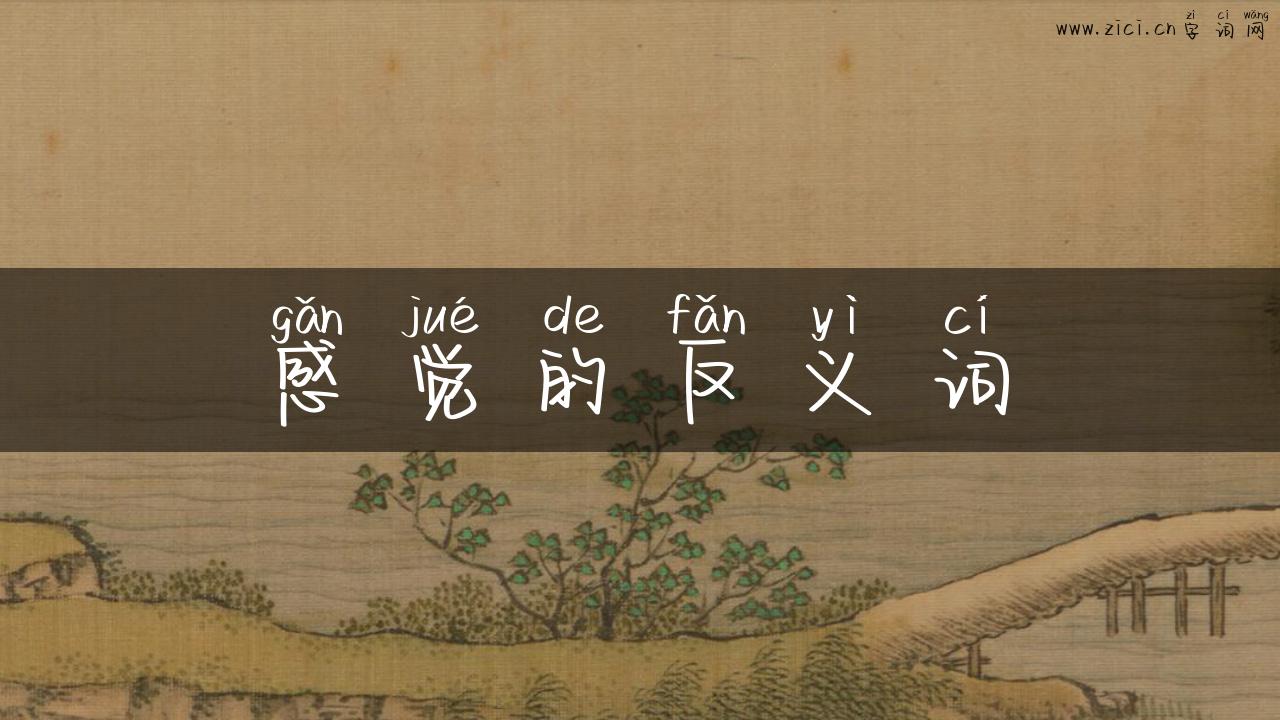 zì cí wǎng
www.zici.cn 字 词 网
gǎn jué de fǎn yì cí
感 觉 的 反 义 词